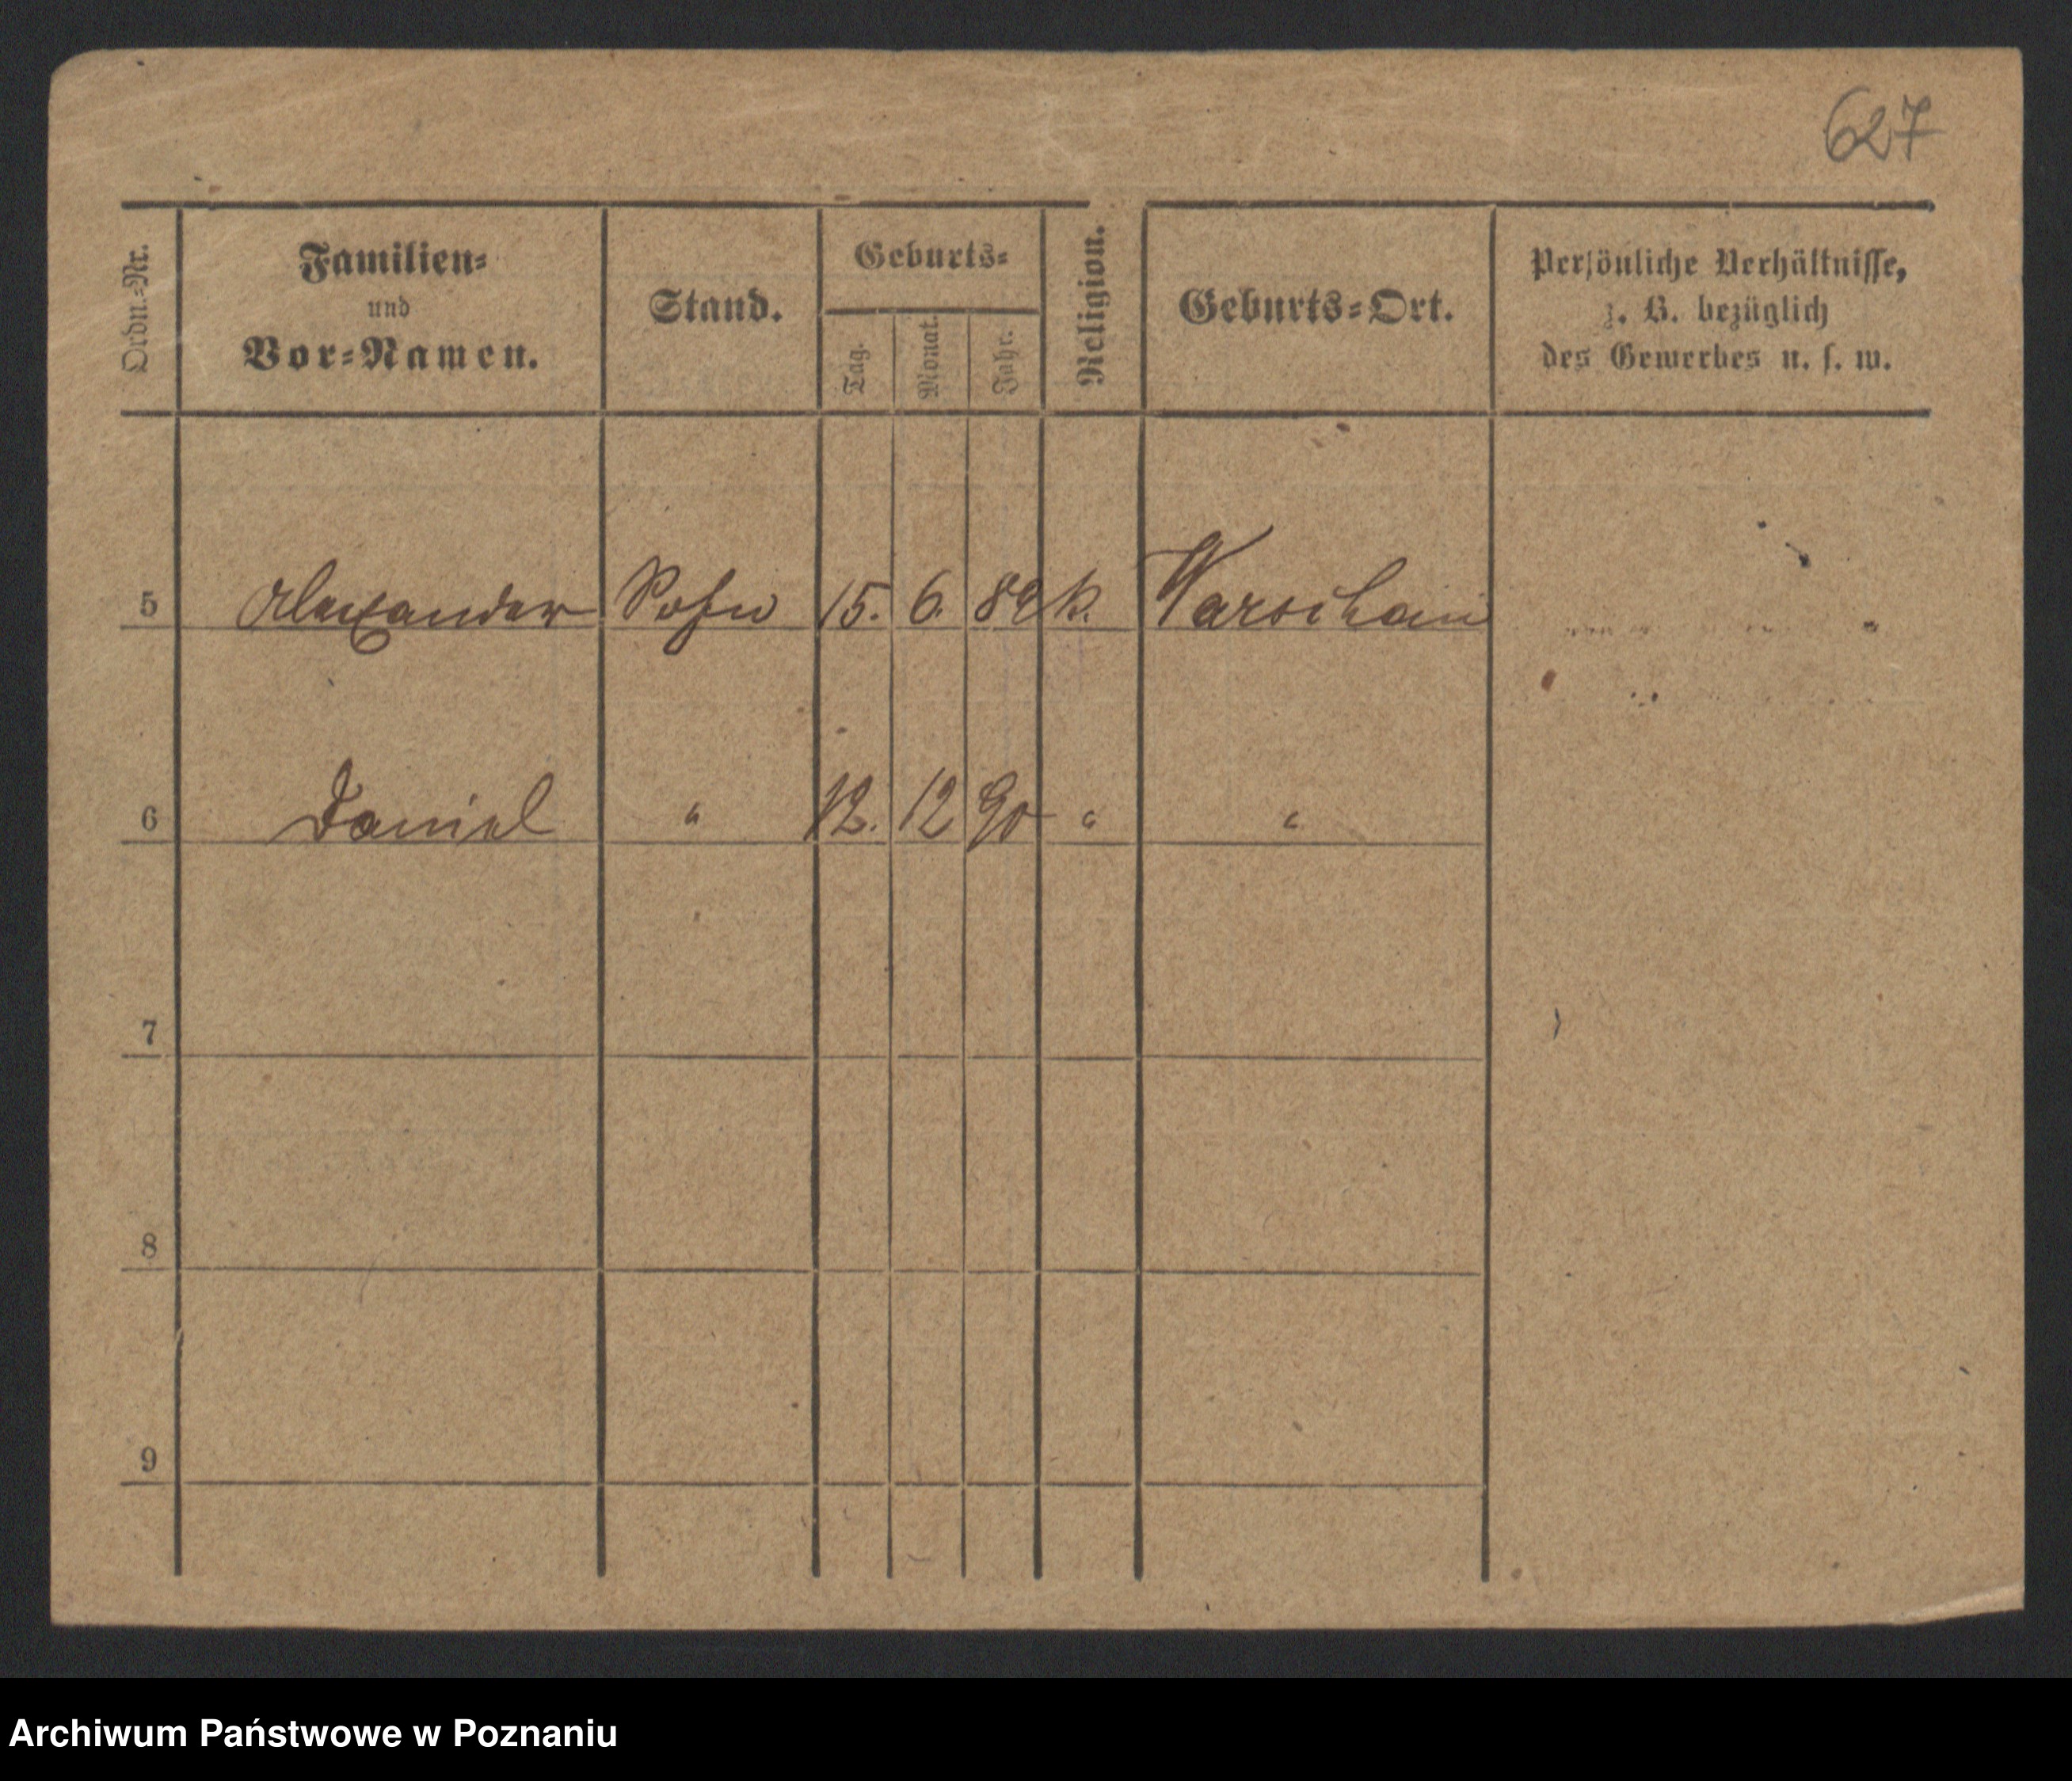 627
Ordn.-Nr.
Familien-
und
Vor-Namen.
Stand.
Geburts-
Tag.
Monat.
Jahr.
Religion.
Geburts-Ort.
Persönliche Verhältnisse,
z. B. bezüglich
des Gewerbes u. s. w.
5 Alexander Sohn 15. 6. 89 k. Warschau
6 Daniel " 12. 12 90 " "
7
8
9
Archiwum Państwowe w Poznaniu